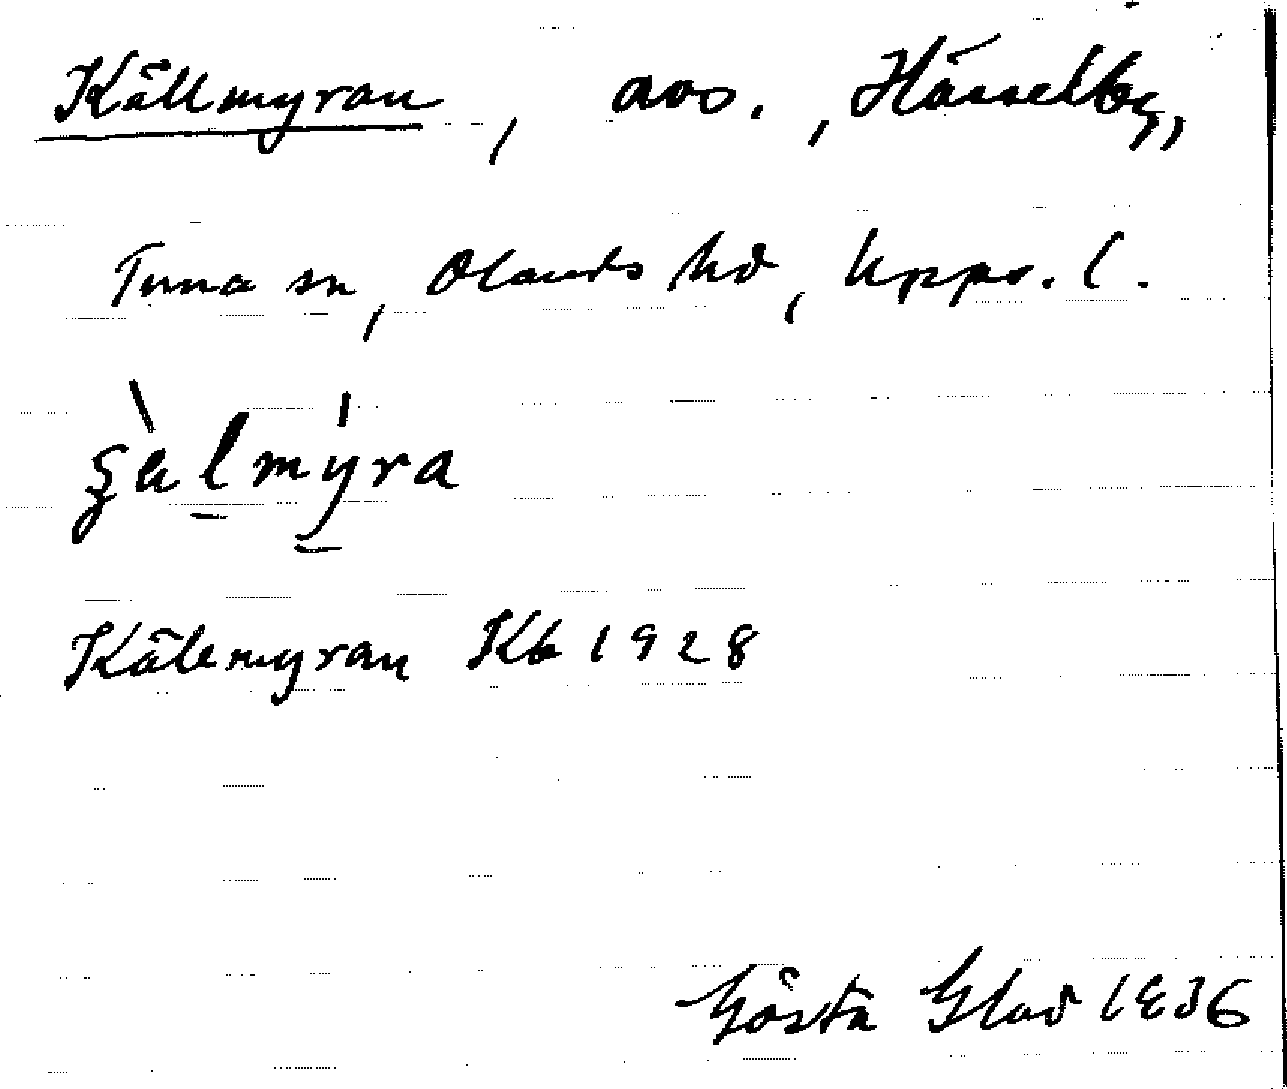 Källmyran, avs., Hässelby,
Tuna sn, Olands hd, Upps. l.
Källmyran Kb 1928
Gösta Glad 1936